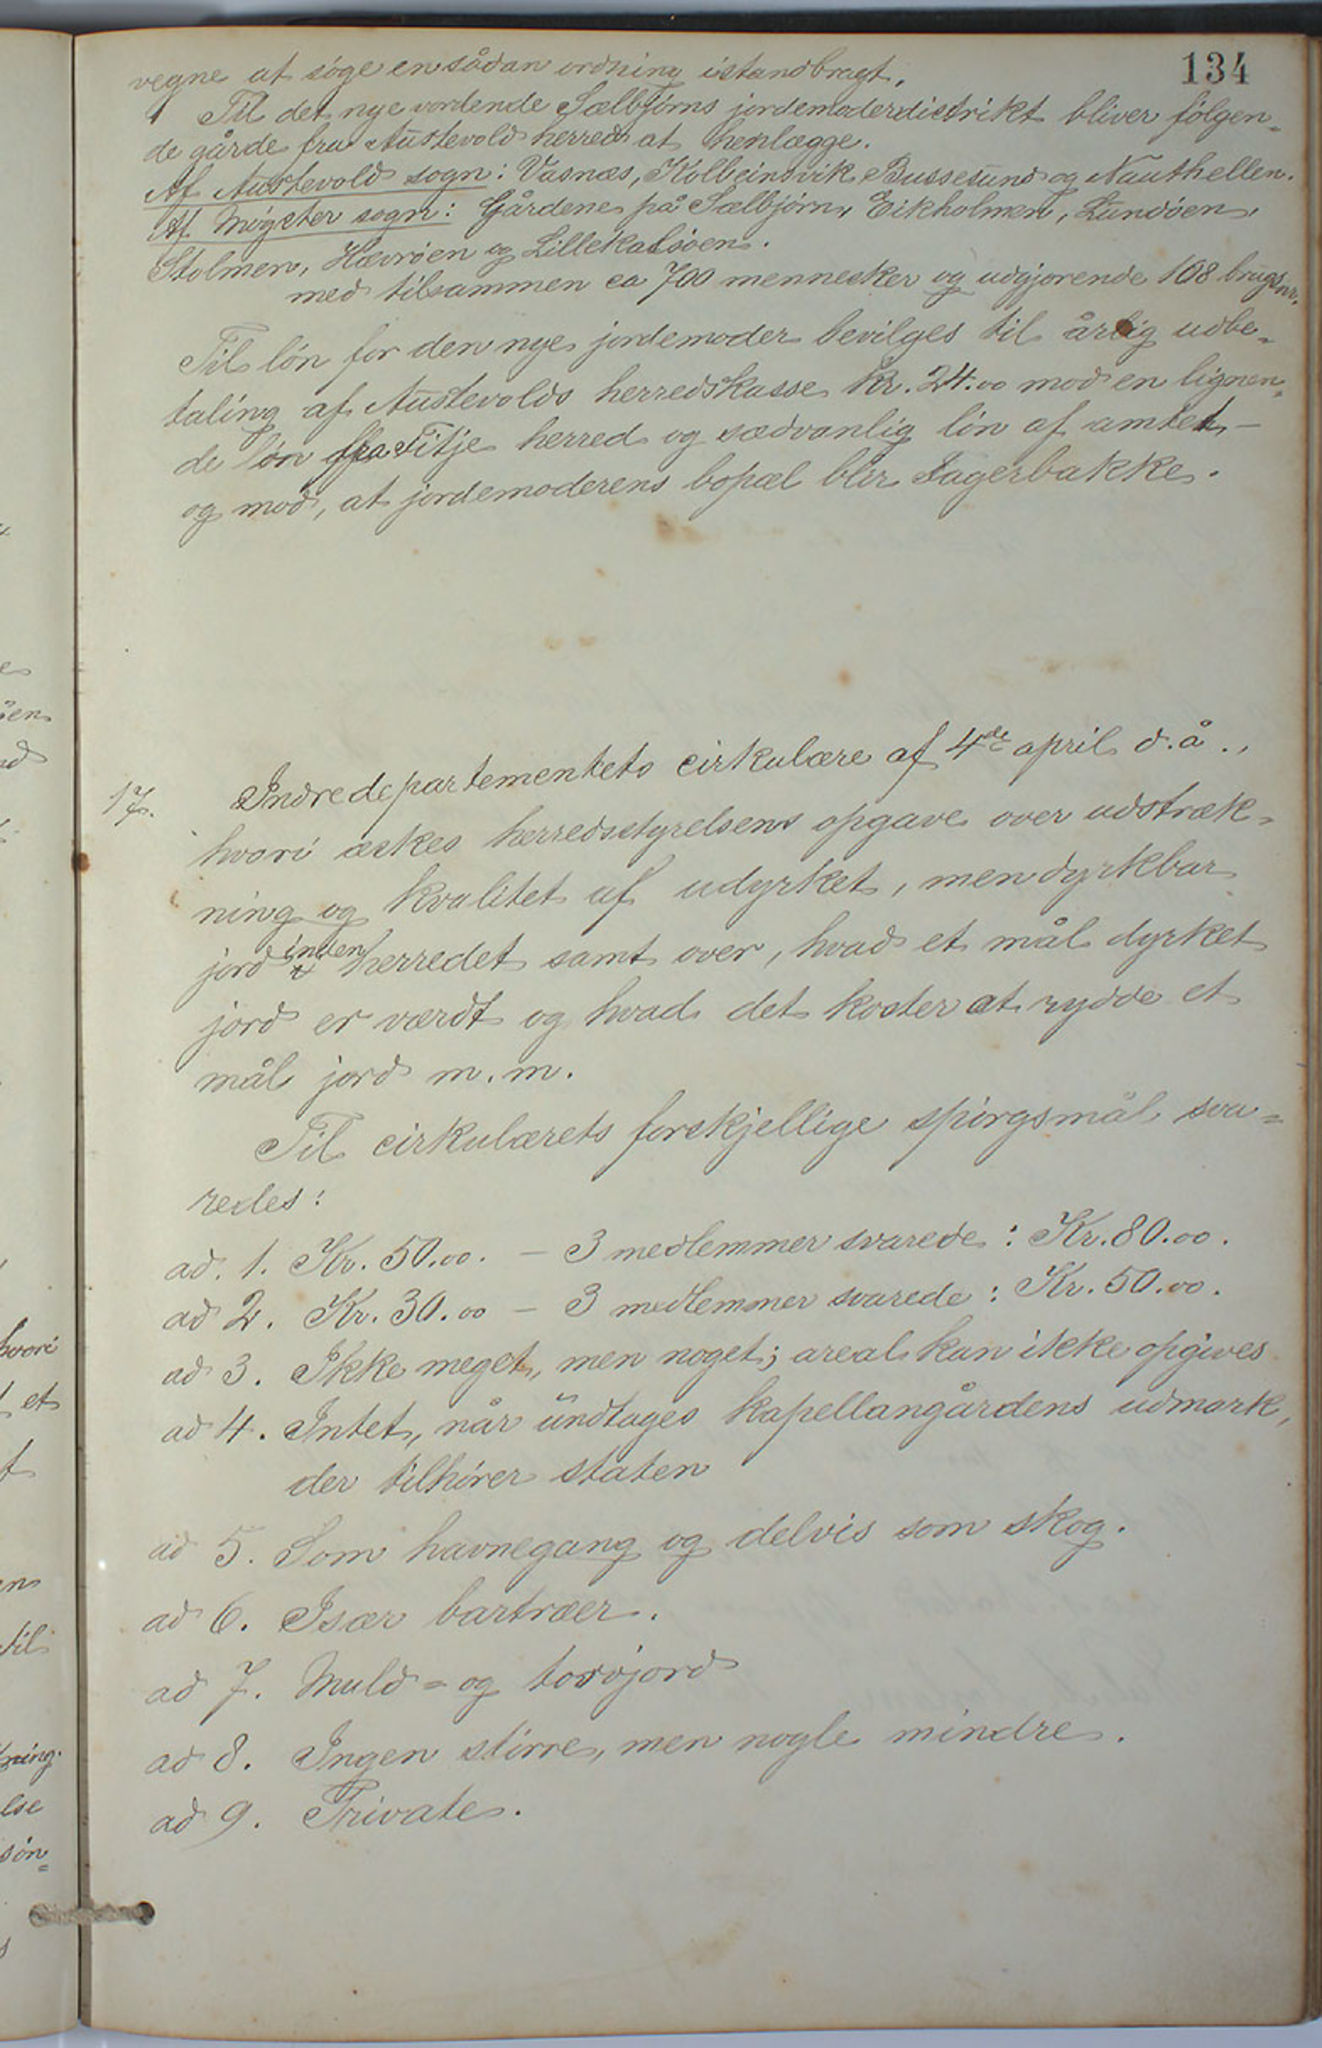 134
vegne at søge en sådan ordning istandbragt.
Til det nye vordende Sælbjørns jordemoderdistrikt bliver følgen-
de gårde fra Austevold herred at henlægge.
Af Austevold sogn: Vasnæs, Kolbeinsvik, Bussesund og Nauthellen.
Af Møgster sogn: Gårdene på Sælbjørn, Eikholmen, Lundøen,
Stolmen, Hævrøen og Lillekalsøen.
med tilsammen ca 700 mennesker og udgjørende 108 brugsnr.
Til løn for den nye jordemoder bevilges til årlig udbe-
taling af Austevolds herredskasse Kr. 24.00 mod en lignen-
de løn fra Fitje herred og sædvanlig løn af amtet -
og mod, at jordemoderens bopæl blir Fagerbakke.
17. Indredepartementets cirkulære af 4de april d.å.,
hvori æskes herredsstyrelsens opgave over udstræk-
ning og kvalitet af udyrket, men dyrkbar
jord inden herredet samt over, hvad et mål dyrket
jord er værdt og hvad det koster at rydde et
mål jord m.m.
Til cirkulærets forskjellige spørgsmål sva=
redes:
ad. 1. Kr. 50.00. - 3 medlemmer svarede: Kr. 80.00.
ad 2. Kr. 30.00 - 3 medlemmer svarede: Kr. 50.00.
ad 3. Ikke meget, men noget; areal kan ikke opgives
ad 4. Intet, når undtages kapellangårdens udmark,
der tilhører staten
ad 5. Som havnegang og delvis som skog.
ad 6. Især bartræer.
ad 7. Muld= og torvjord
ad 8. Ingen større, men nogle mindre.
ad 9. Private.